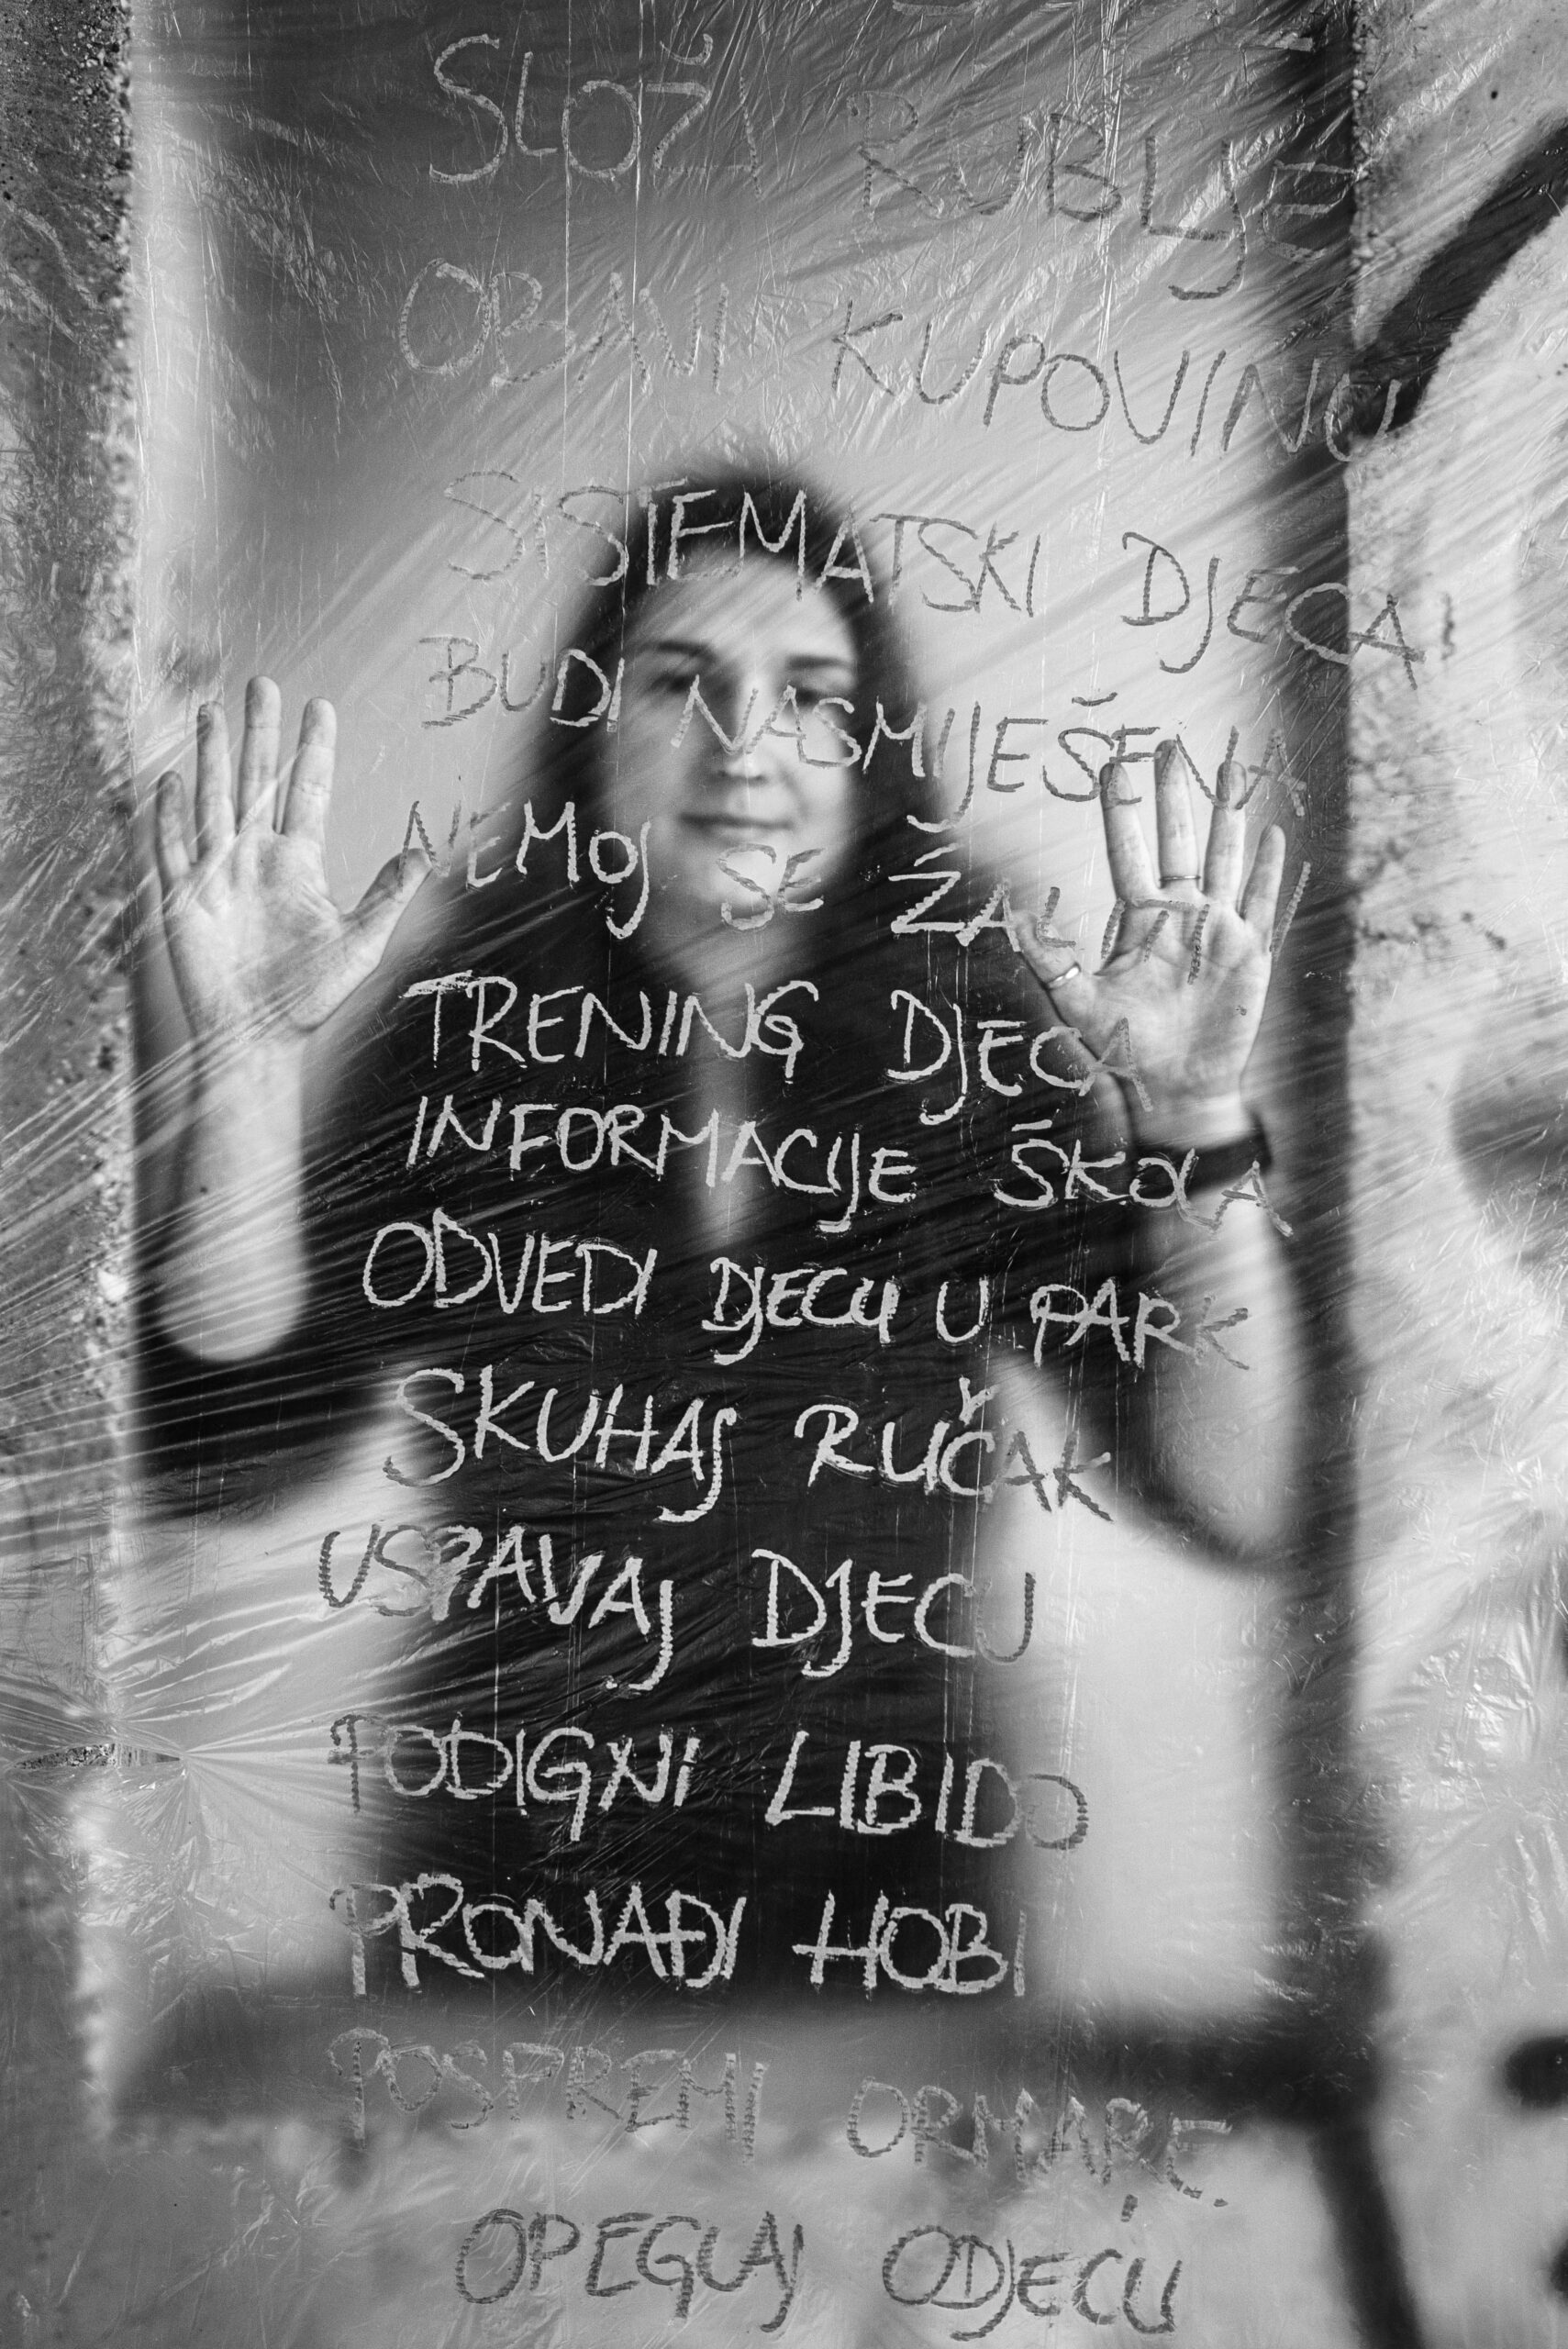 SLOŽI RUBLJE
OBAVI KUPOVINU
SISTEMATSKI DJECA!
BUDI NASMIJEŠENA
NEMOJ SE ŽALITI!
TRENING DJECA
INFORMACIJE ŠKOLA
ODVEDI DJECU U PARK
SKUHAJ RUČAK
USPAVAJ DJECU
PODIGNI LIBIDO
PRONAĐI HOBI
POSPREMI ORMARE
OPEGLAJ ODJEĆU